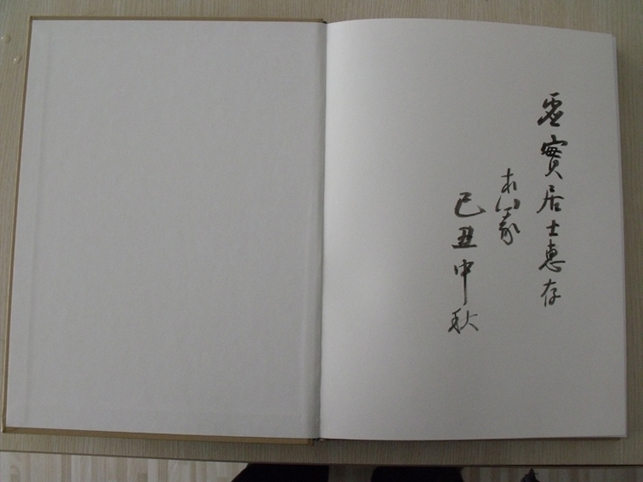 虚實居士惠存
己丑中秋